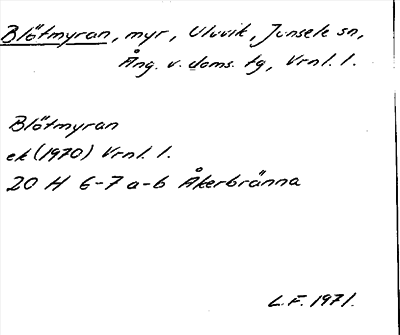 Blötmyran, myr, Uluvik, Junsele sn,
Ång. v. doms. tg, Vrnl. l.
Blötmyran
ek (1970) Vrnl. l.
20 H 6-7 a-b Åkerbränna
L.F. 1971.